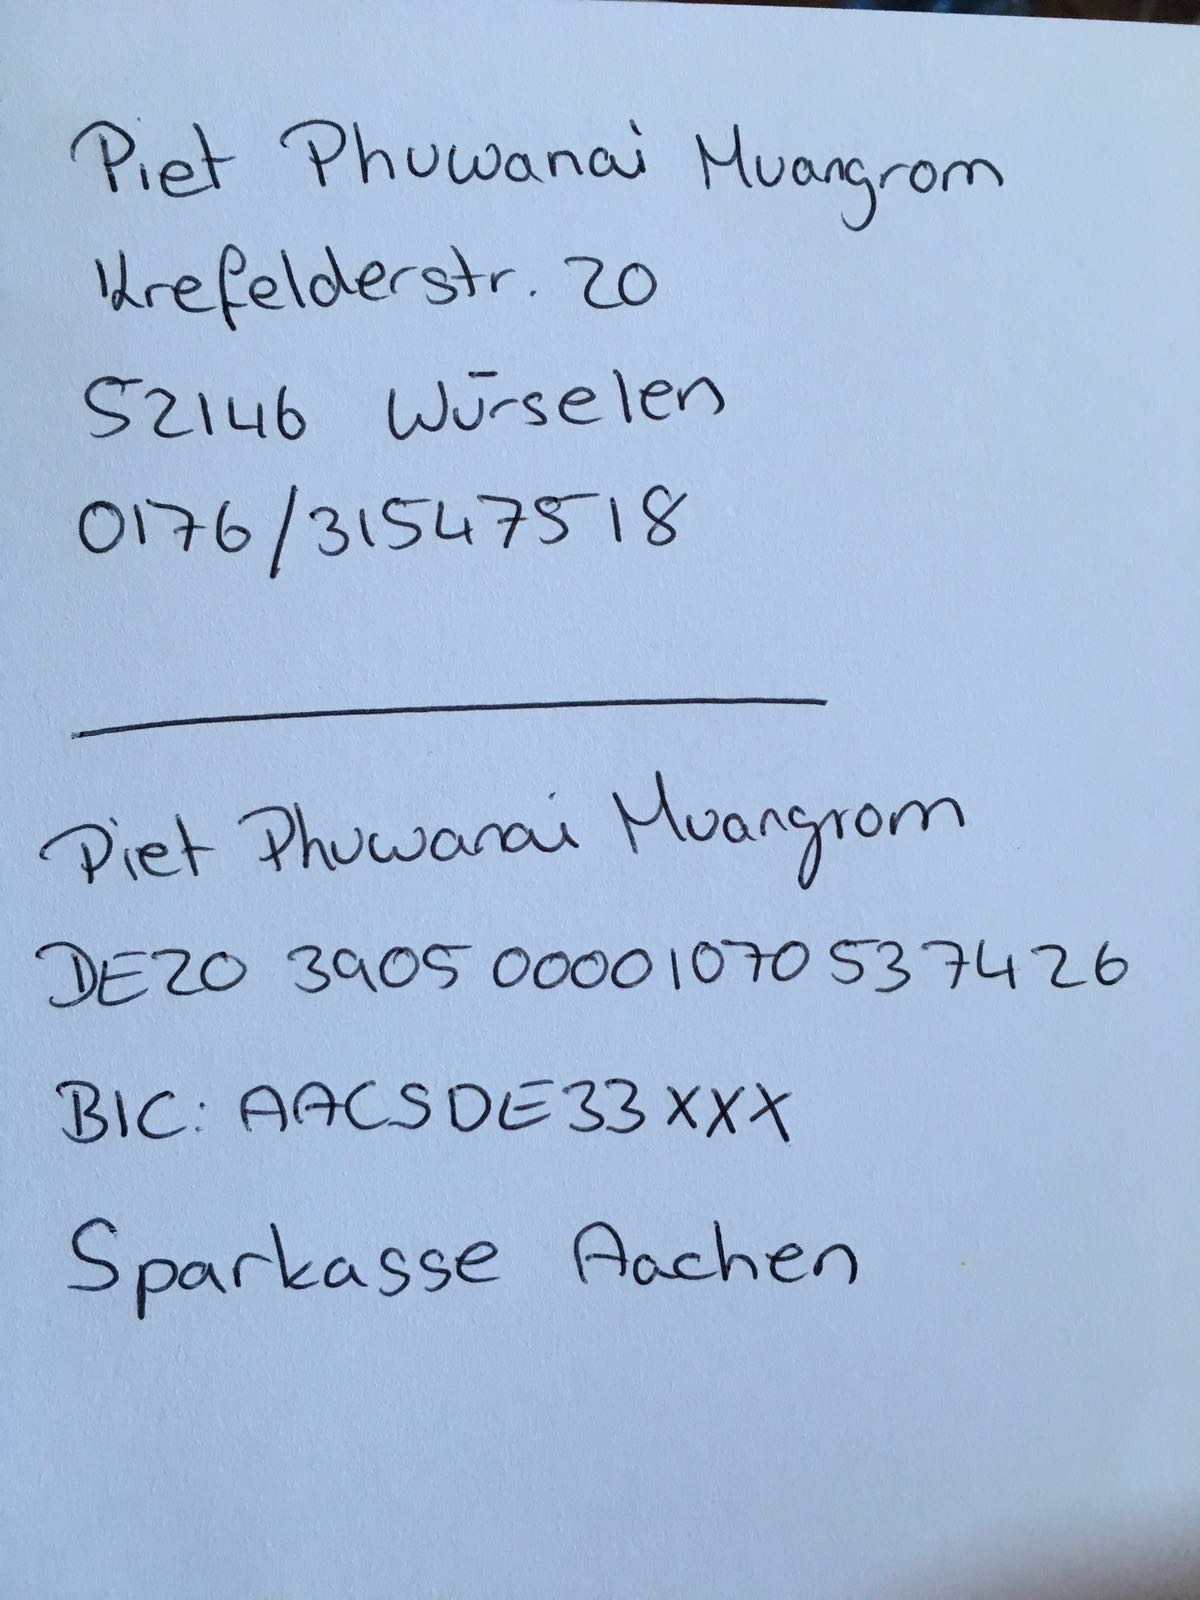 Piet Phuwanai Muangrom
Krefelderstr. 20
52146 Würselen
0176/31547518
Piet Phuwanai Muangrom
DE20 3905 00001070537426
BIC: AACSDE33XXX
Sparkasse Aachen